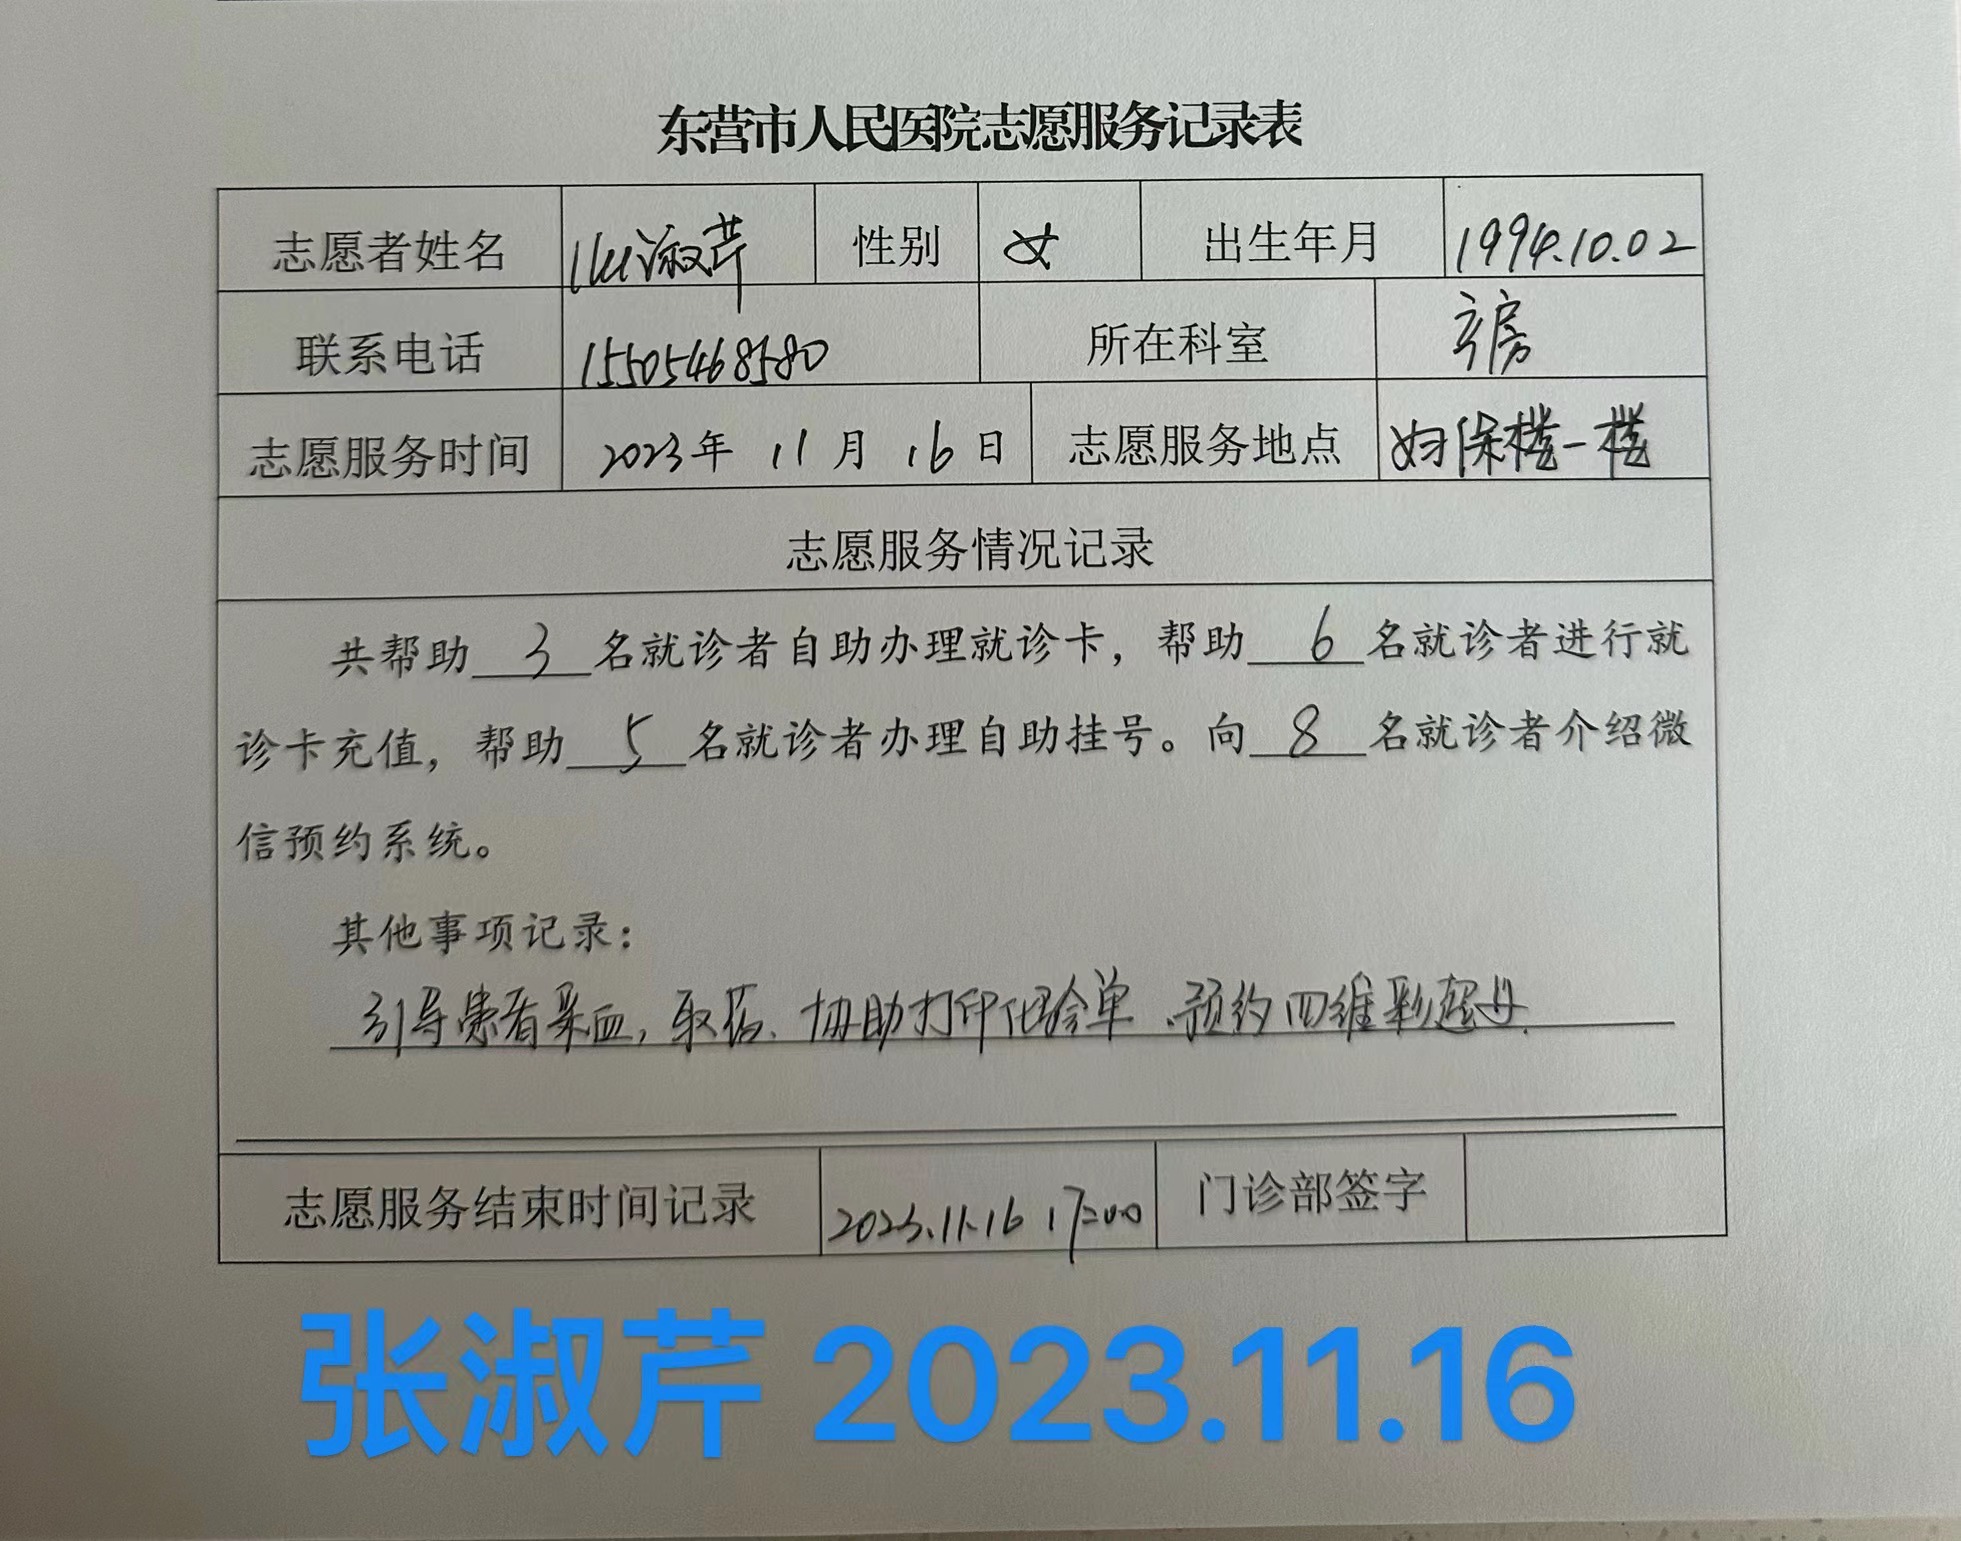 东营市人民医院志愿服务记录表
志愿者姓名 张淑芹 性别 女 出生年月 1994.10.02
联系电话 15505468580 所在科室 产房
志愿服务时间 2023年 11月 16日 志愿服务地点 妇保楼一楼
志愿服务情况记录
共帮助 3 名就诊者自助办理就诊卡，帮助 6 名就诊者进行就
诊卡充值，帮助 5 名就诊者办理自助挂号。向 8 名就诊者介绍微
信预约系统。
其他事项记录：
引导患者采血，取药、协助打印化验单、预约四维彩超
志愿服务结束时间记录 2023.11.16 17:00 门诊部签字
张淑芹 2023.11.16